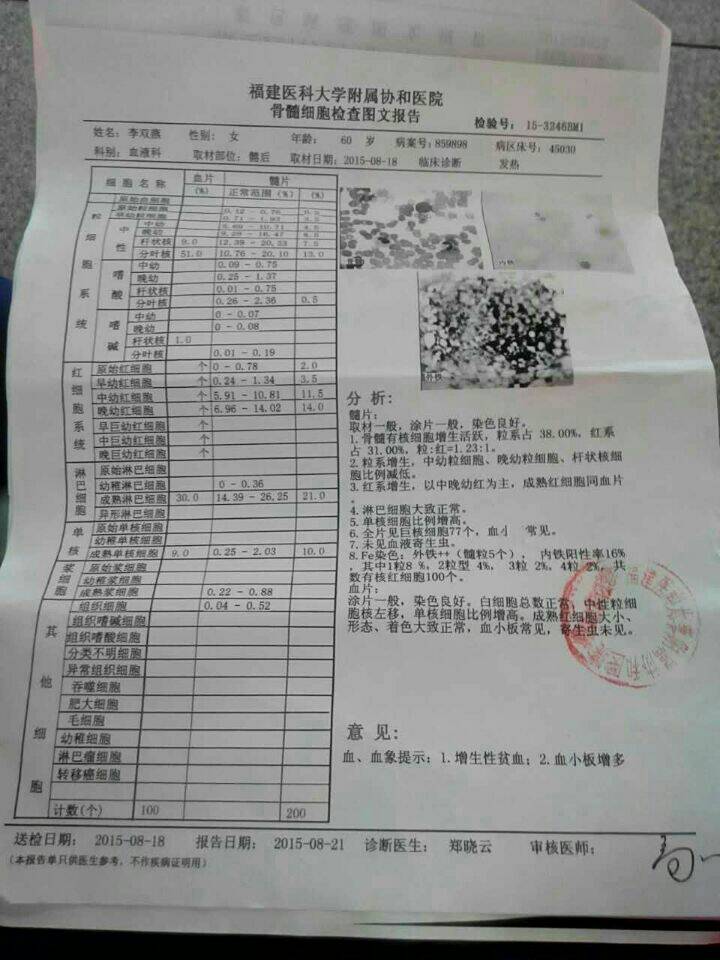 福建医科大学附属协和医院
骨髓细胞检查图文报告
检验号: 15-3246BM1
姓名: 李双燕 性别: 女 年龄: 60 岁 病案号:859898 病区床号: 45030
科别: 血液科 取材部位: 髓后 取材日期:2015-08-18 临床诊断 发热
细胞名称 血片 髓片
(%) 正常范围(%) (%)
粒细胞系统
原始血细胞
原始粒细胞 0.12 - 0.76 0.5
早幼粒细胞 0.71 - 1.93
中性
中幼 5.69 - 10.71 4.5
晚幼 9.29 - 16.47
杆状核 9.0 12.39 - 20.33 7.5
分叶核 51.0 10.76 - 20.10 13.0
嗜酸
中幼 0.09 - 0.75
晚幼 0.25 - 1.37
杆状核 0.01 - 0.75
分叶核 0.26 - 2.36 0.5
嗜碱
中幼 0 - 0.07
晚幼 0 - 0.08
杆状核 1.0
分叶核 0.01 - 0.19
红细胞系统
原始红细胞 个 0 - 0.78 2.0
早幼红细胞 个 0.24 - 1.34 3.5
中幼红细胞 个 5.91 - 10.81 11.5
晚幼红细胞 个 6.96 - 14.02 14.0
早巨幼红细胞 个
中巨幼红细胞 个
晚巨幼红细胞 个
淋巴细胞
原始淋巴细胞
幼稚淋巴细胞 0 - 0.36
成熟淋巴细胞 30.0 14.39 - 26.25 21.0
异形淋巴细胞
单核
原始单核细胞
幼稚单核细胞
成熟单核细胞 9.0 0.25 - 2.03 10.0
浆细胞
原始浆细胞
幼稚浆细胞
成熟浆细胞 0.22 - 0.88
其他细胞
组织细胞 0.04 - 0.52
组织嗜碱细胞
组织嗜酸细胞
分类不明细胞
异常组织细胞
吞噬细胞
肥大细胞
毛细胞
幼稚细胞
淋巴瘤细胞
转移癌细胞
计数(个) 100 200
内铁
外铁
分 析:
髓片:
取材一般，涂片一般，染色良好。
1.骨髓有核细胞增生活跃，粒系占 38.00%，红系
占 31.00%，粒:红=1.23:1。
2.粒系增生，中幼粒细胞、晚幼粒细胞、杆状核细
胞比例减低。
3.红系增生，以中晚幼红为主，成熟红细胞同血片
。
4.淋巴细胞大致正常。
5.单核细胞比例增高。
6.全片见巨核细胞77个，血小 常见。
7.未见血液寄生虫。
8.Fe染色: 外铁++（髓粒5个）， 内铁阳性率16%
，其中1粒8 %，2粒型 4%， 3粒 2%，4粒 2%，共
数有核红细胞100个。
血片:
涂片一般，染色良好。白细胞总数正常，中性粒细
胞核左移，单核细胞比例增高。成熟红细胞大小、
形态、着色大致正常，血小板常见，寄生虫未见。
意 见:
血、血象提示: 1.增生性贫血; 2.血小板增多
送检日期: 2015-08-18 报告日期: 2015-08-21 诊断医生: 郑晓云 审核医师:
(本报告单只供医生参考，不作疾病证明用)